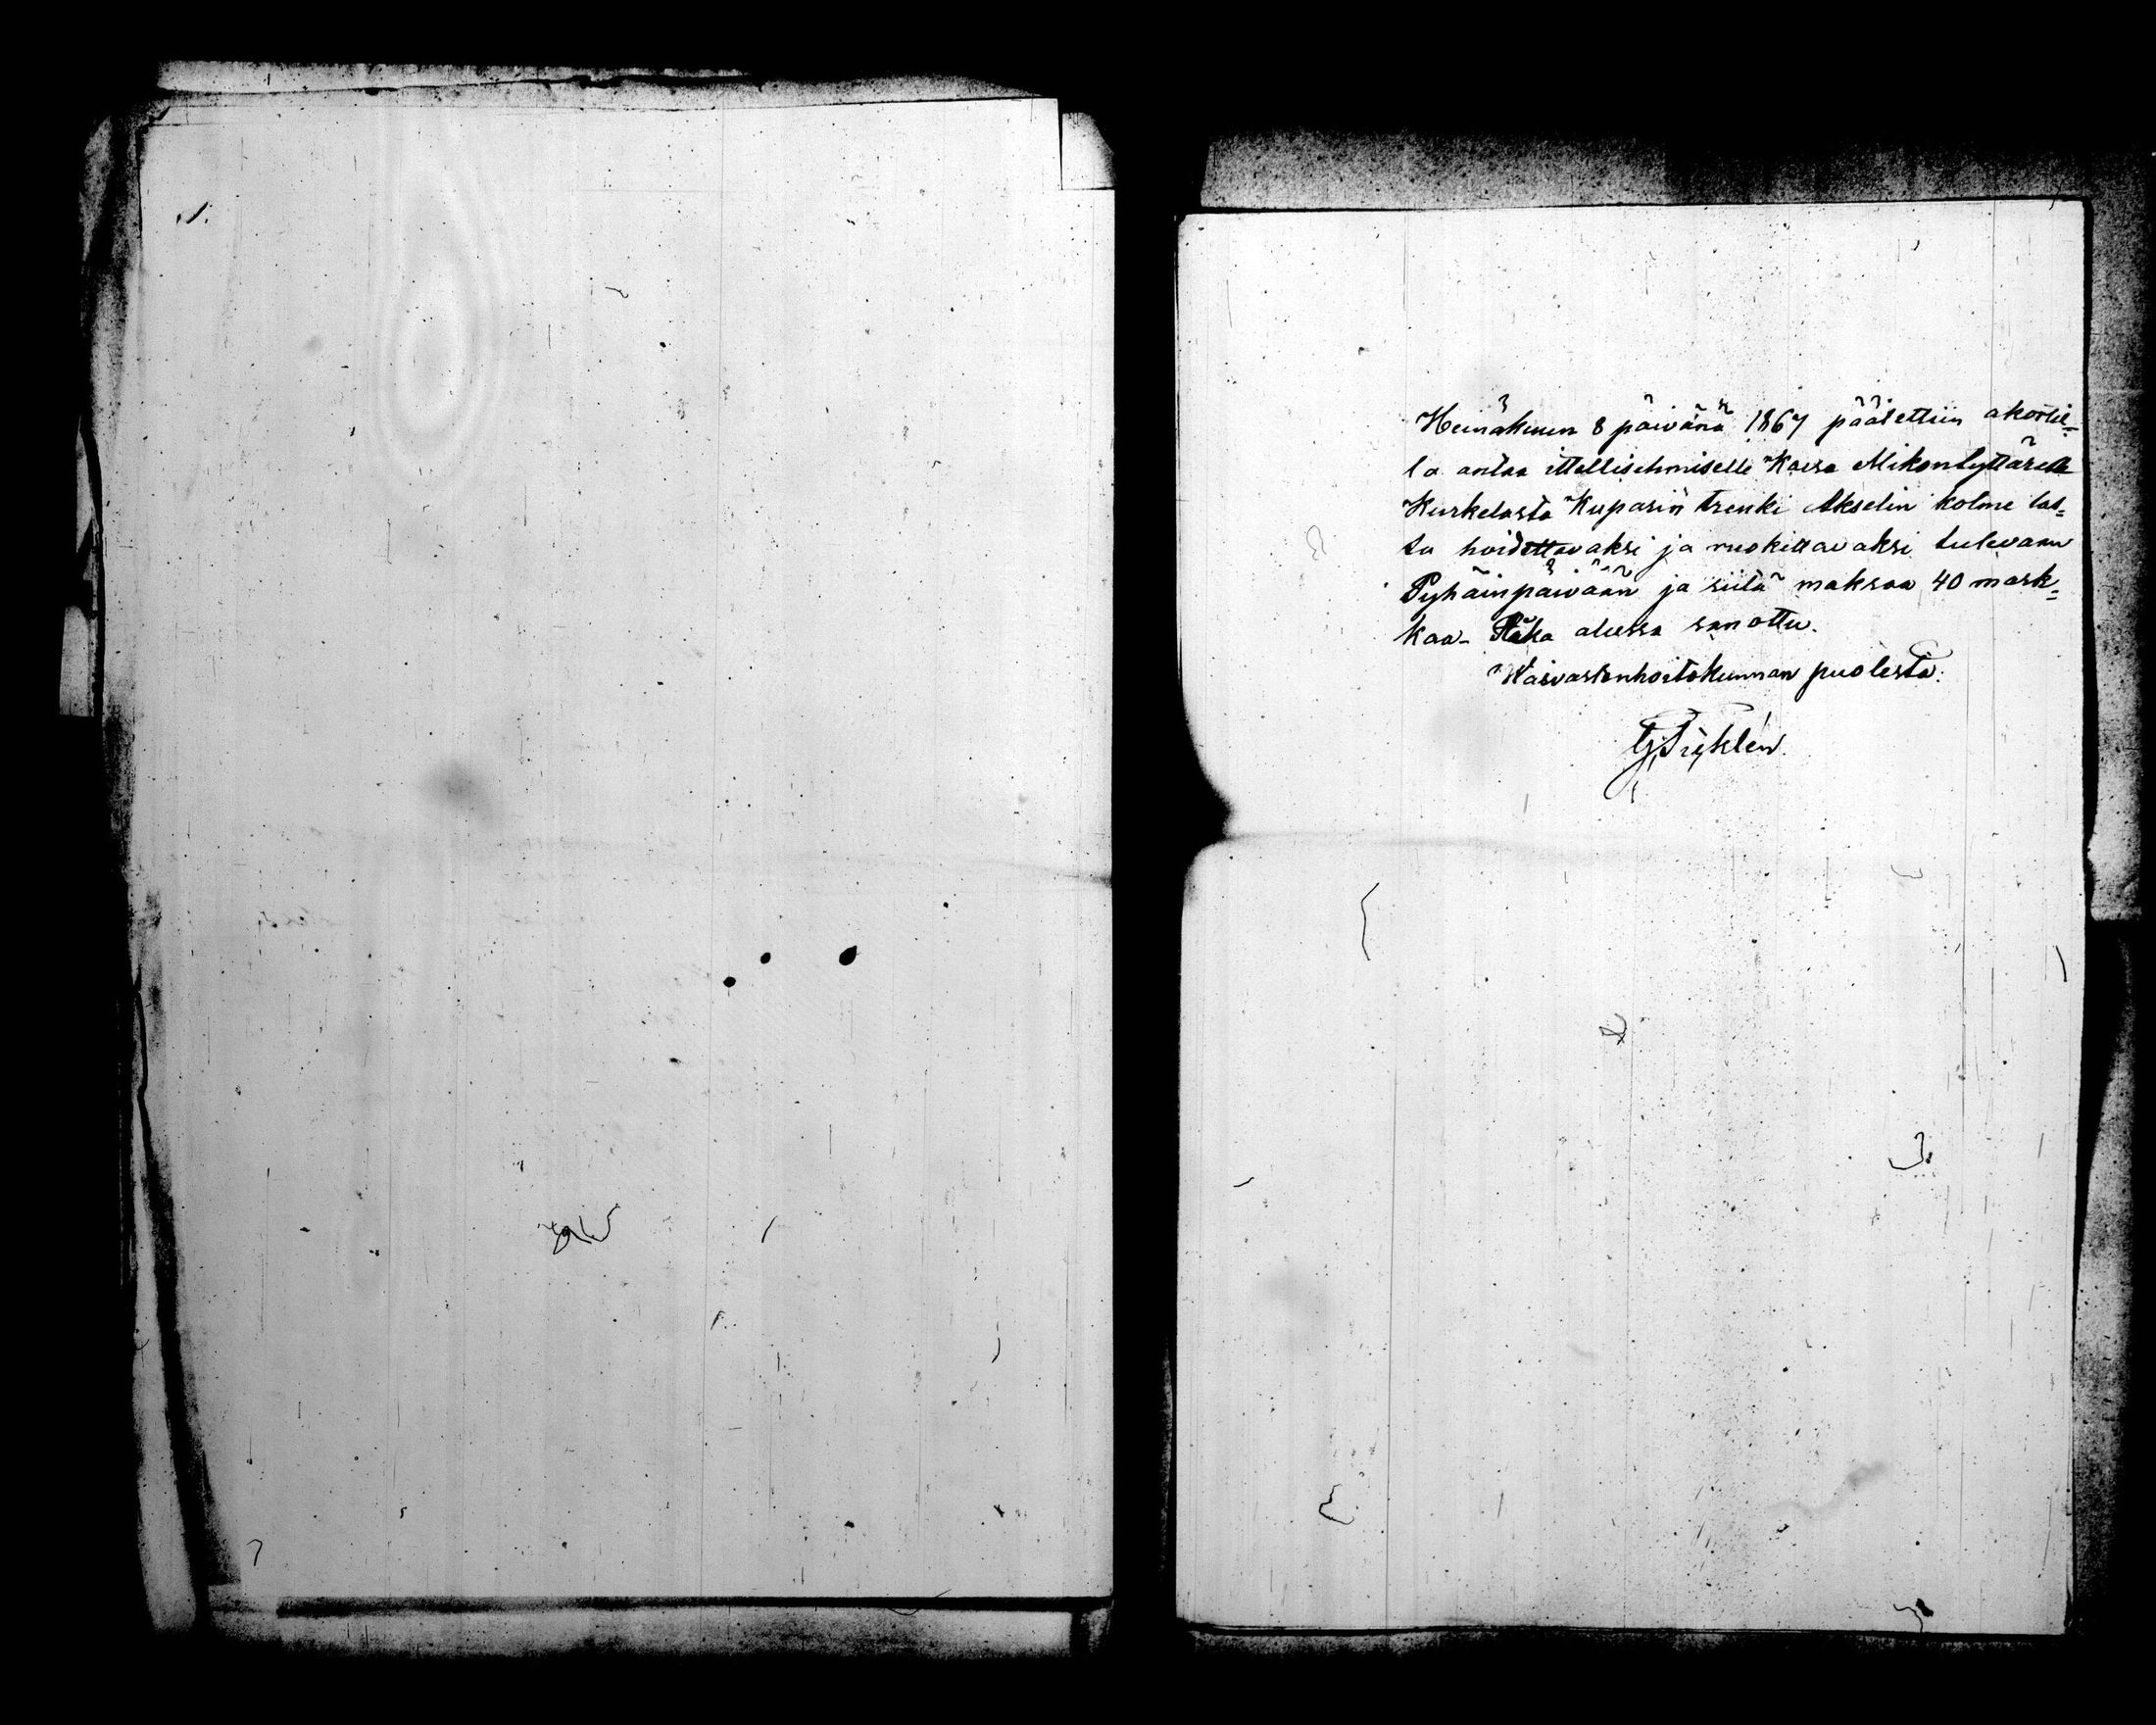 Heinäkuun 8 päivänä 1867 päätettiin akortil=
la antaa ittellisehmiselle Kaisa Mikontyttärelle
Kurkelasta Kuparin trenki Akselin kolme las=
ta hoidettavaksi ja ruokittavaksi tulevaan
Pyhäinpäivään ja siitä maksaa 40 mark=
kaa- Aika alussa sanottu.
Waivastenhoitokunnan puolesta: